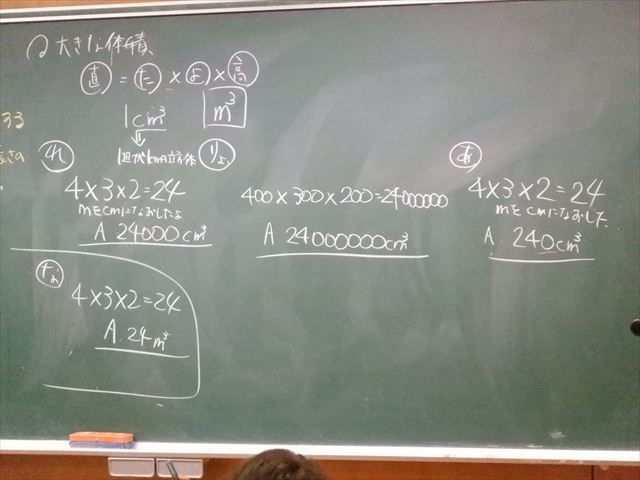 大きな体積
直 = た × よ × 高
1cm³
m³
1辺が1cmの立方体
れ
4×3×2=24
mをcmになおしたよ
A 24000cm³
りょ
400×300×200=24000000
A 24000000cm³
あ
4×3×2=24
mをcmになおした
A. 240cm³
なお
4×3×2=24
A. 24m³
する